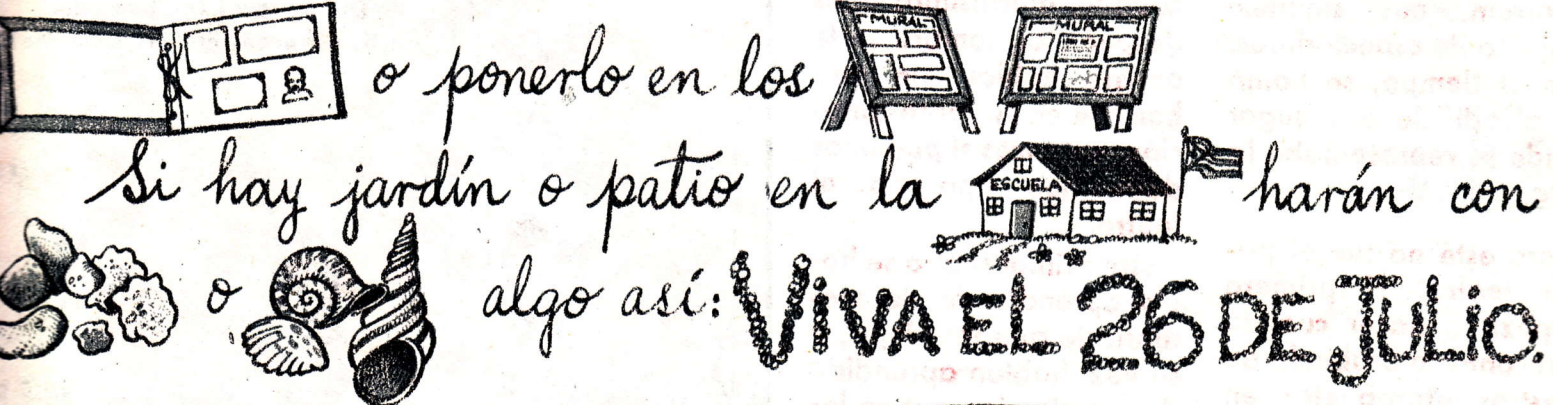 o ponerlo en los MURAL MURAL
Si hay jardín o patio en la ESCUELA harán con
o algo así: VIVA EL 26 DE JULIO.